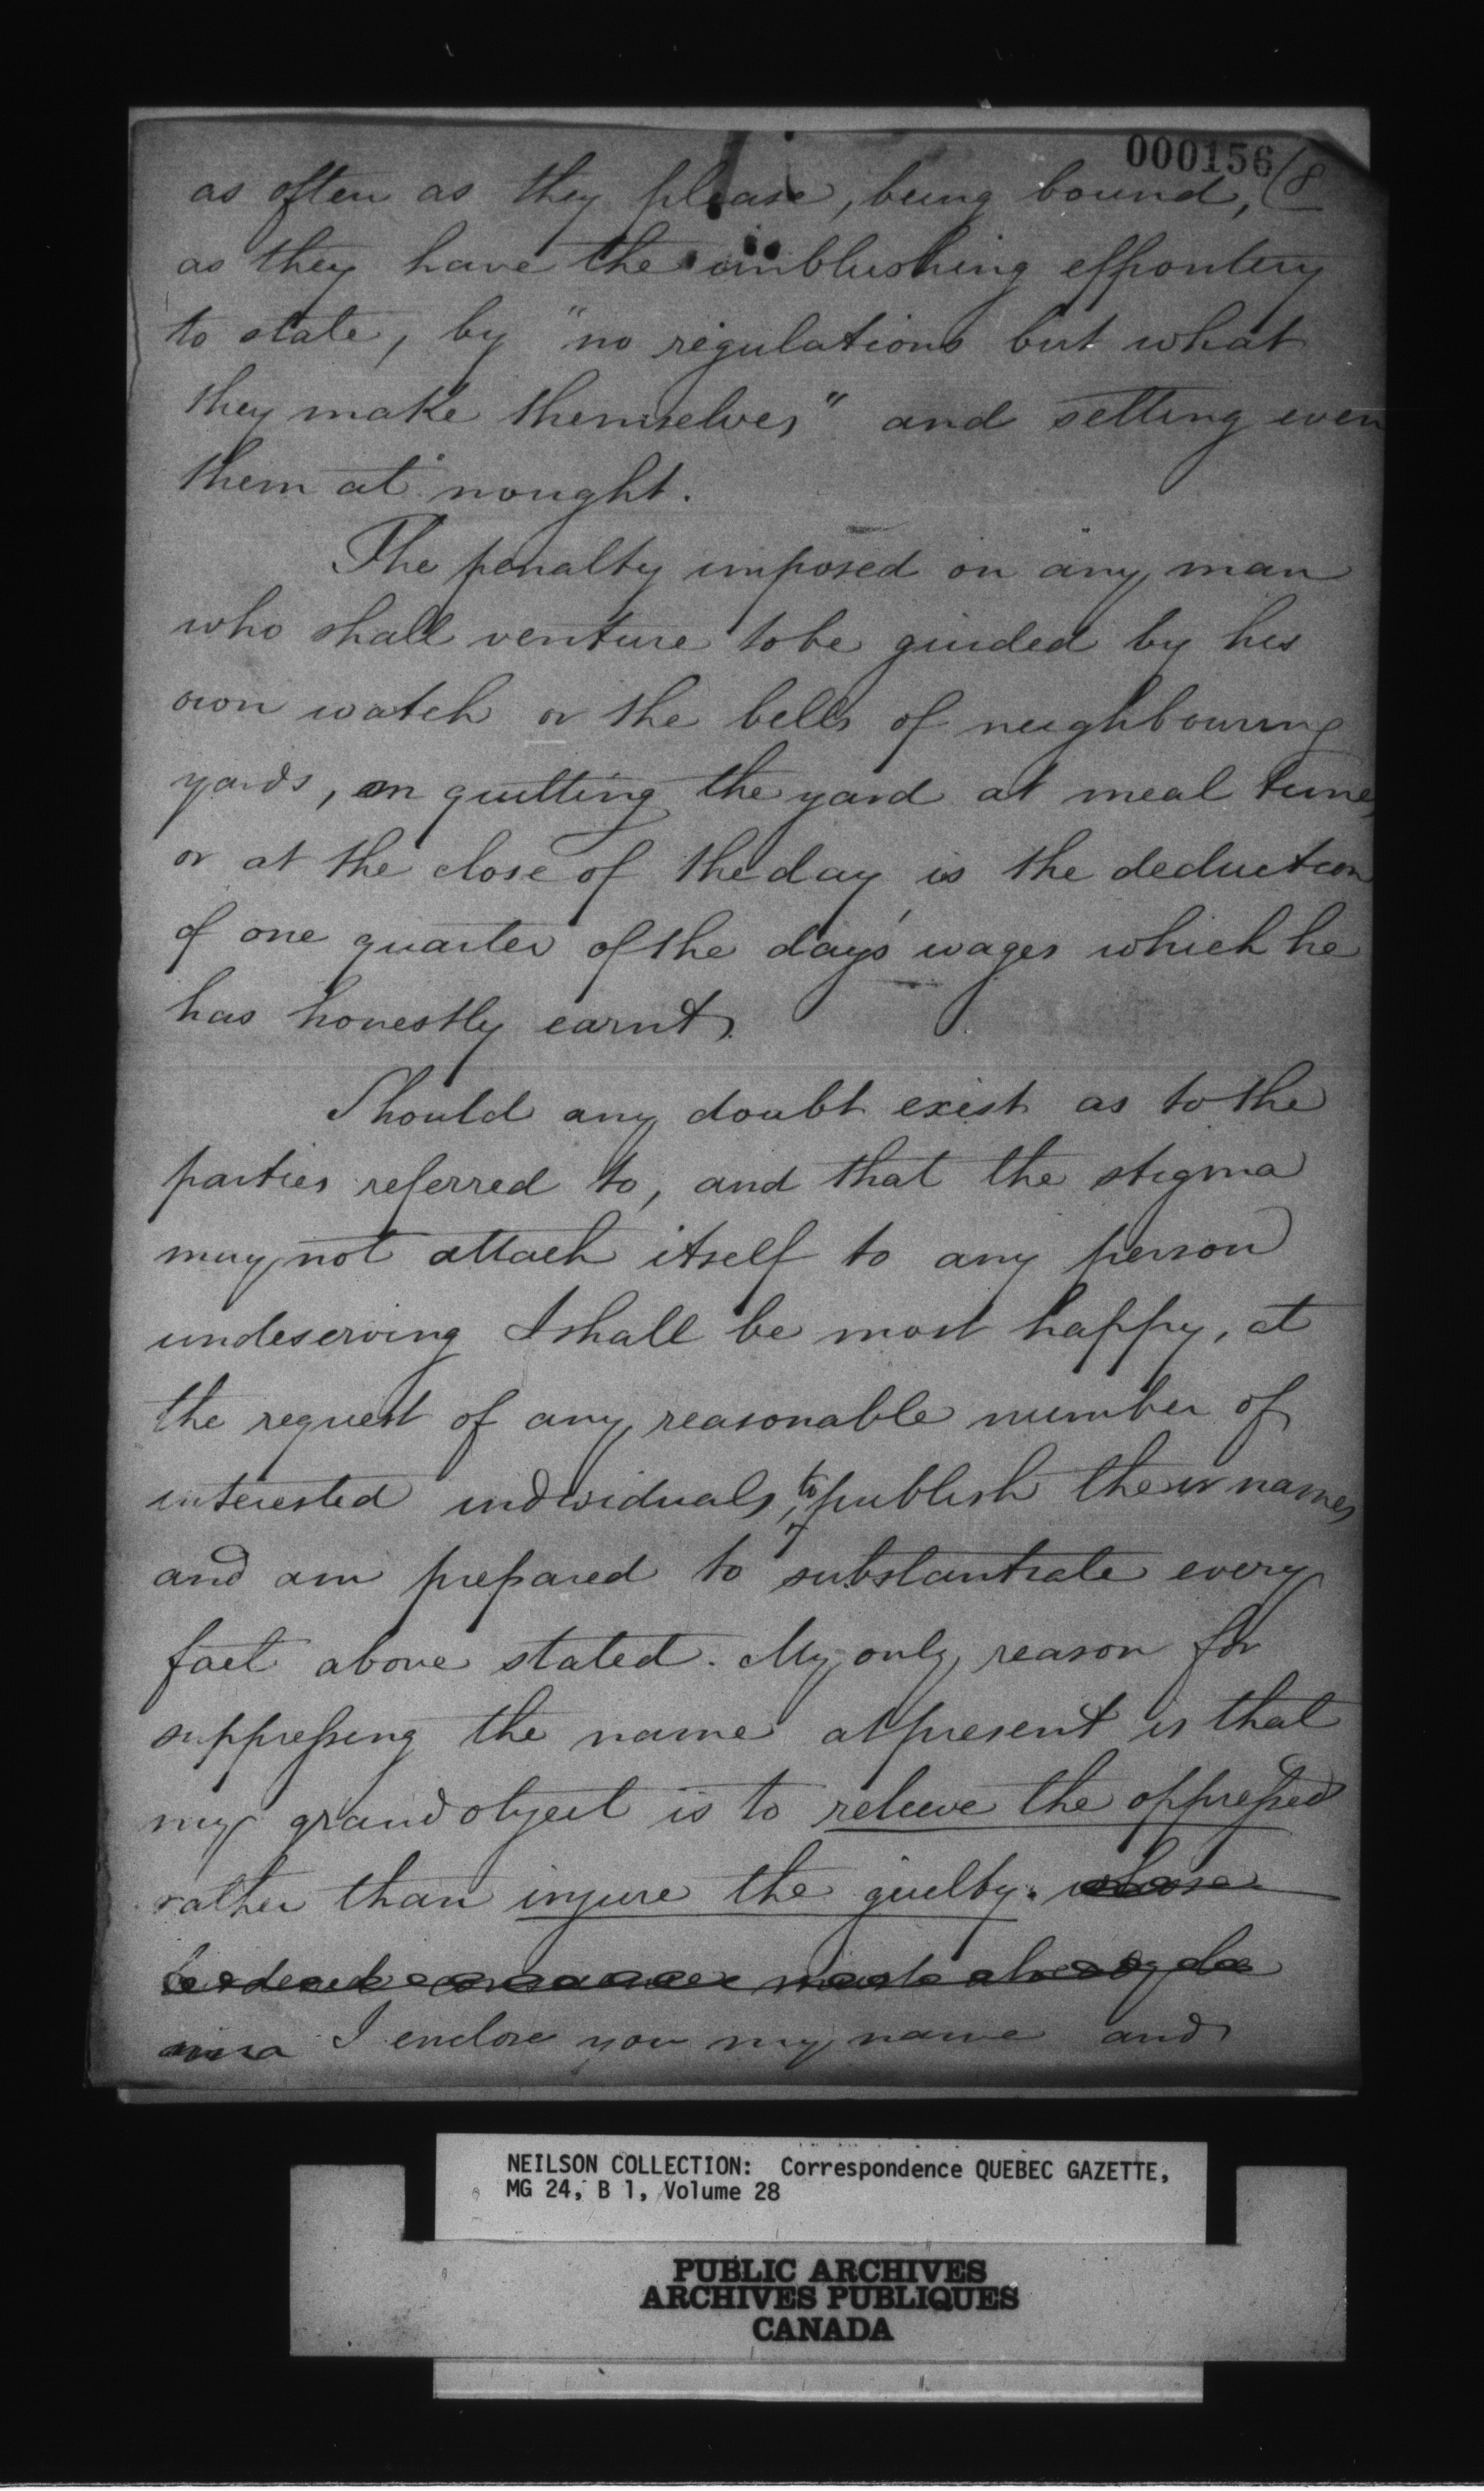 000156
as often as they please, being bound, (8
as they have the unblushing effrontery
to state, by "no regulations but what
they make themselves" and setting even
them at nought.
The penalty imposed on any man
who shall venture to be guided by his
own watch or the bells of neighbouring
yards, on quitting the yard at meal time,
or at the close of the day is the deduction
of one quarter of the day's wages which he
has honestly earnt.
Should any doubt exist as to the
parties referred to, and that the stigma
may not attach itself to any person
undeserving I shall be most happy, at
the request of any reasonable number of
interested individuals, to publish their names
and am prepared to substantiate every
fact above stated. My only reason for
suppressing the name at present is that
my grand object is to releeve the oppressed
rather than injure the guilty. whose
must already
I enclose you my name and
NEILSON COLLECTION: Correspondence QUEBEC GAZETTE,
MG 24, B 1, Volume 28
PUBLIC ARCHIVES
ARCHIVES PUBLIQUES
CANADA